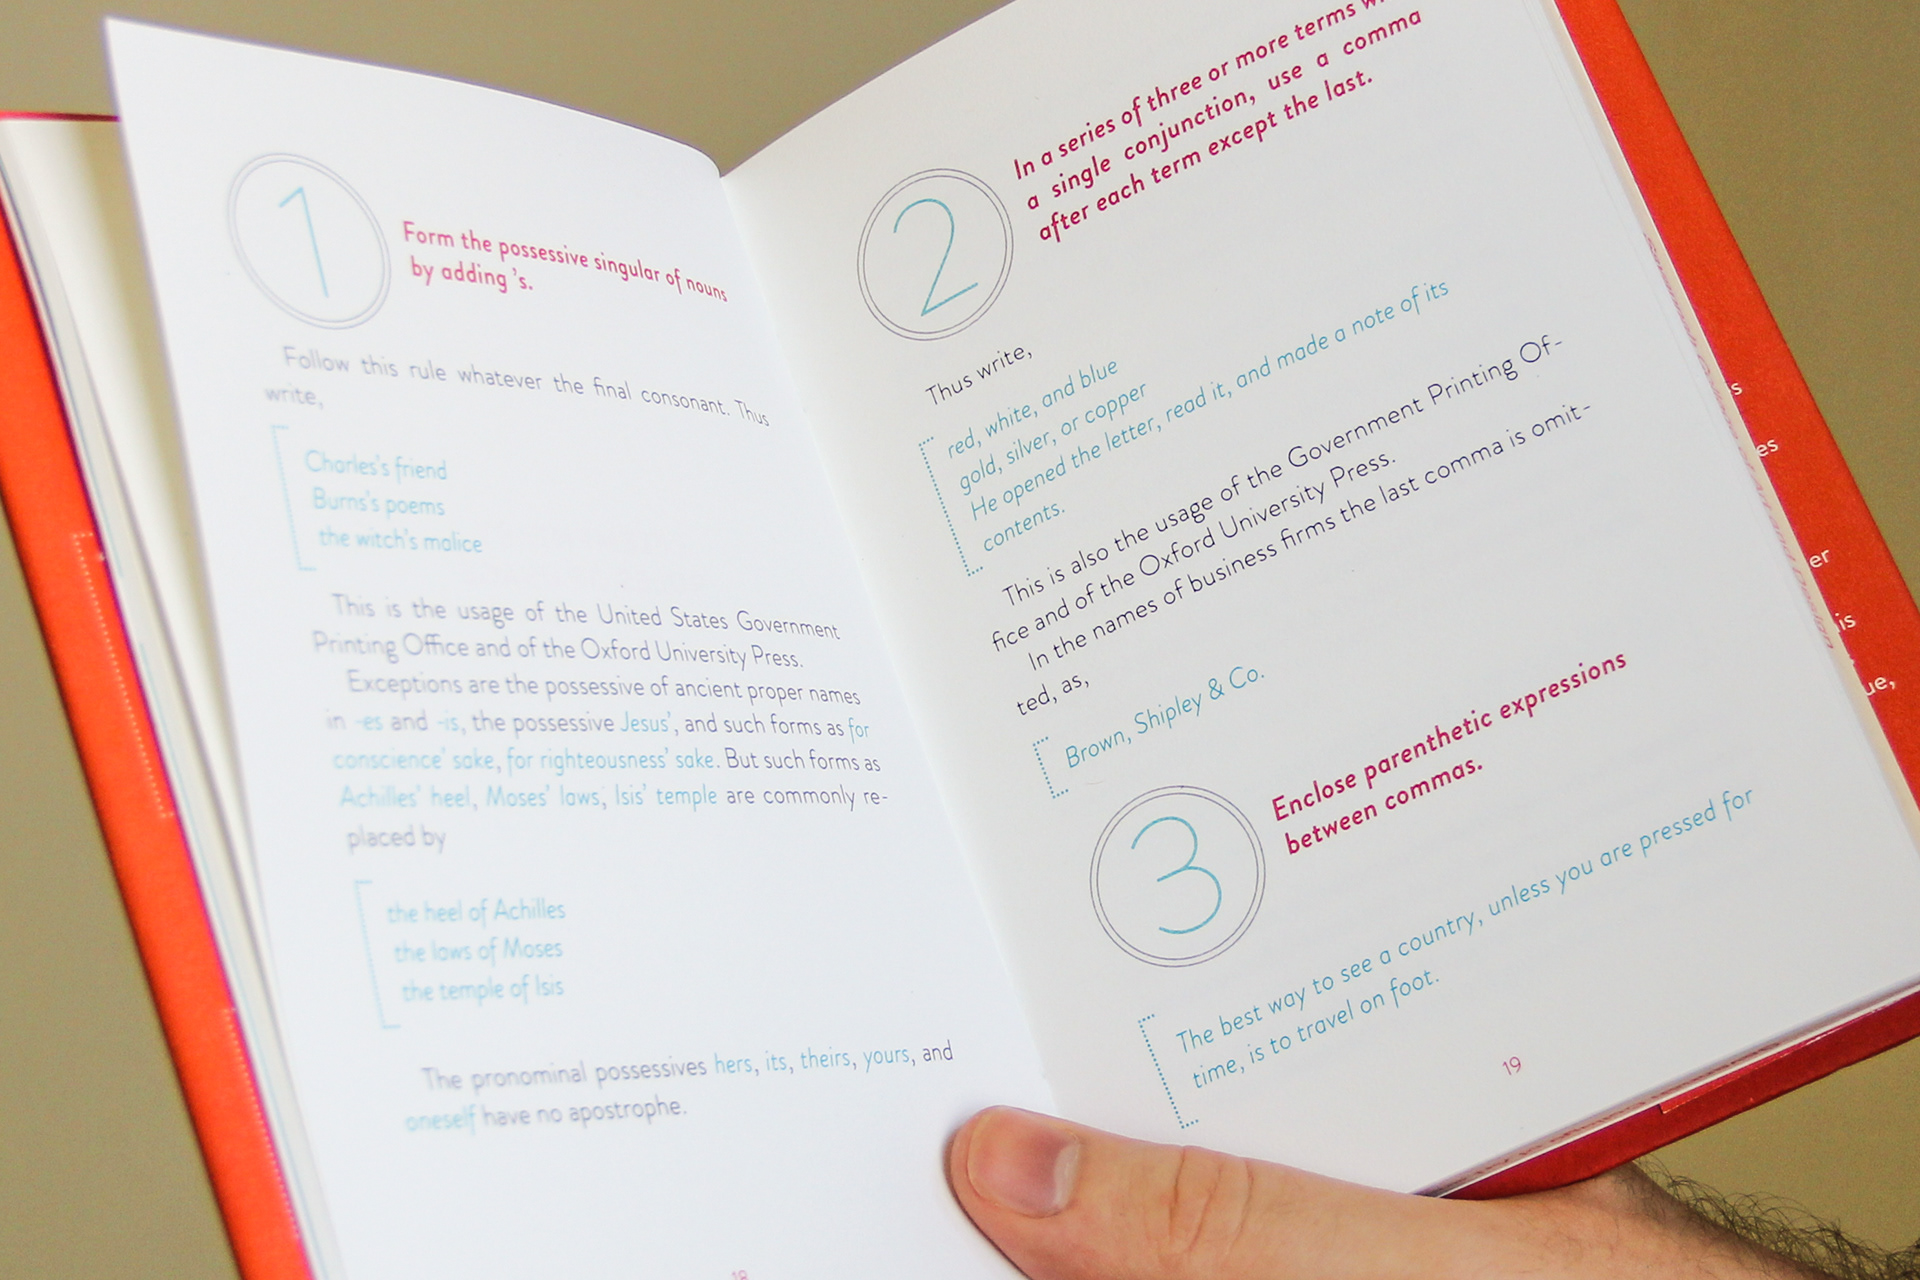 1
Form the possessive singular of nouns
by adding 's.
Follow this rule whatever the final consonant. Thus
write,
Charles's friend
Burns's poems
the witch's malice
This is the usage of the United States Government
Printing Office and of the Oxford University Press.
Exceptions are the possessive of ancient proper names
in -es and -is, the possessive Jesus', and such forms as for
conscience' sake, for righteousness' sake. But such forms as
Achilles' heel, Moses' laws, Isis' temple are commonly re-
placed by
the heel of Achilles
the laws of Moses
the temple of Isis
The pronominal possessives hers, its, theirs, yours, and
oneself have no apostrophe.
18
2
In a series of three or more terms
a single conjunction, use a comma
after each term except the last.
Thus write,
red, white, and blue
gold, silver, or copper
He opened the letter, read it, and made a note of its
contents.
This is also the usage of the Government Printing Of-
fice and of the Oxford University Press.
In the names of business firms the last comma is omit-
ted, as,
Brown, Shipley & Co.
3
Enclose parenthetic expressions
between commas.
The best way to see a country, unless you are pressed for
time, is to travel on foot.
19